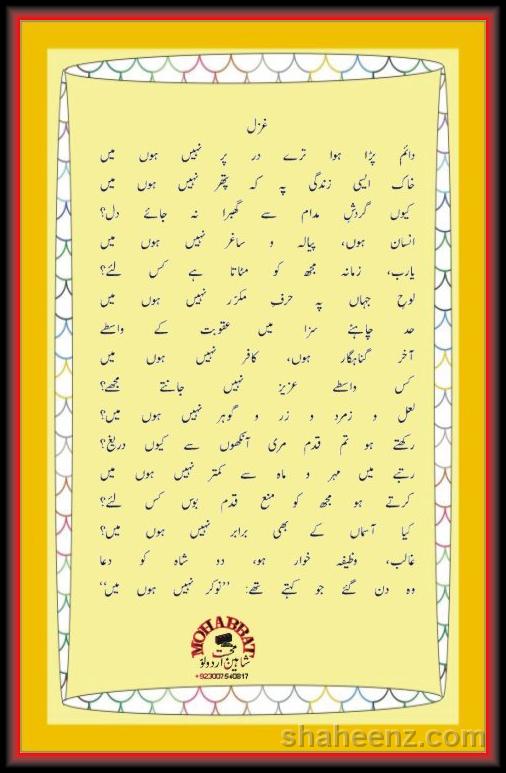 غزل
دائم پڑا ہوا ترے در پر نہیں ہوں میں
خاک ایسی زندگی پہ کہ پتھر نہیں ہوں میں
کیوں گردشِ مدام سے گھبرا نہ جائے دل؟
انسان ہوں، پیالہ و ساغر نہیں ہوں میں
یارب، زمانہ مجھ کو مٹاتا ہے کس لئے؟
لوحِ جہاں پہ حرفِ مکرّر نہیں ہوں میں
حد چاہئے سزا میں عقوبت کے واسطے
آخر گناہگار ہوں، کافر نہیں ہوں میں
کس واسطے عزیز نہیں جانتے مجھے؟
لعل و زمرد و زر و گوہر نہیں ہوں میں؟
رکھتے ہو تم قدم مری آنکھوں سے کیوں دریغ؟
رتبے میں مہر و ماہ سے کمتر نہیں ہوں میں
کرتے ہو مجھ کو منع قدم بوس کس لئے؟
کیا آسماں کے بھی برابر نہیں ہوں میں؟
غالب، وظیفہ خوار ہو، دو شاہ کو دعا
وہ دن گئے جو کہتے تھے: ”نوکر نہیں ہوں میں“
MOHABBAT
محبت
شاہین اردو لو
+923007540817
shaheenz.com